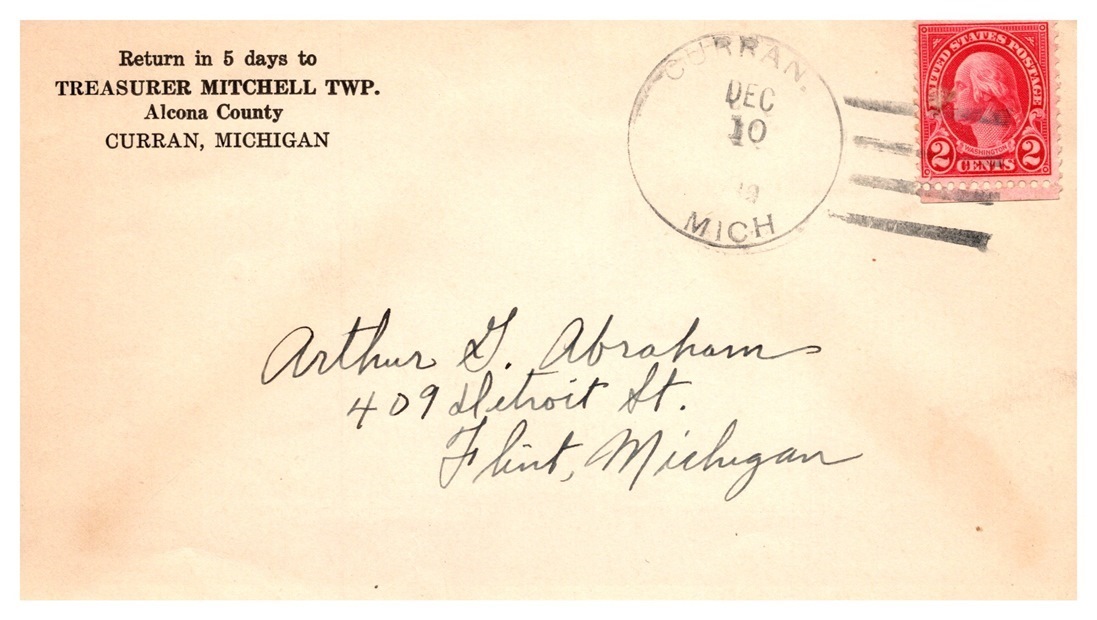 Return in 5 days to
TREASURER MITCHELL TWP.
Alcona County
CURRAN, MICHIGAN
CURRAN.
DEC
10
MICH
UNITED STATES POSTAGE
WASHINGTON
2 CENTS 2
Arthur G. Abraham
409 Detroit St.
Flint, Michigan